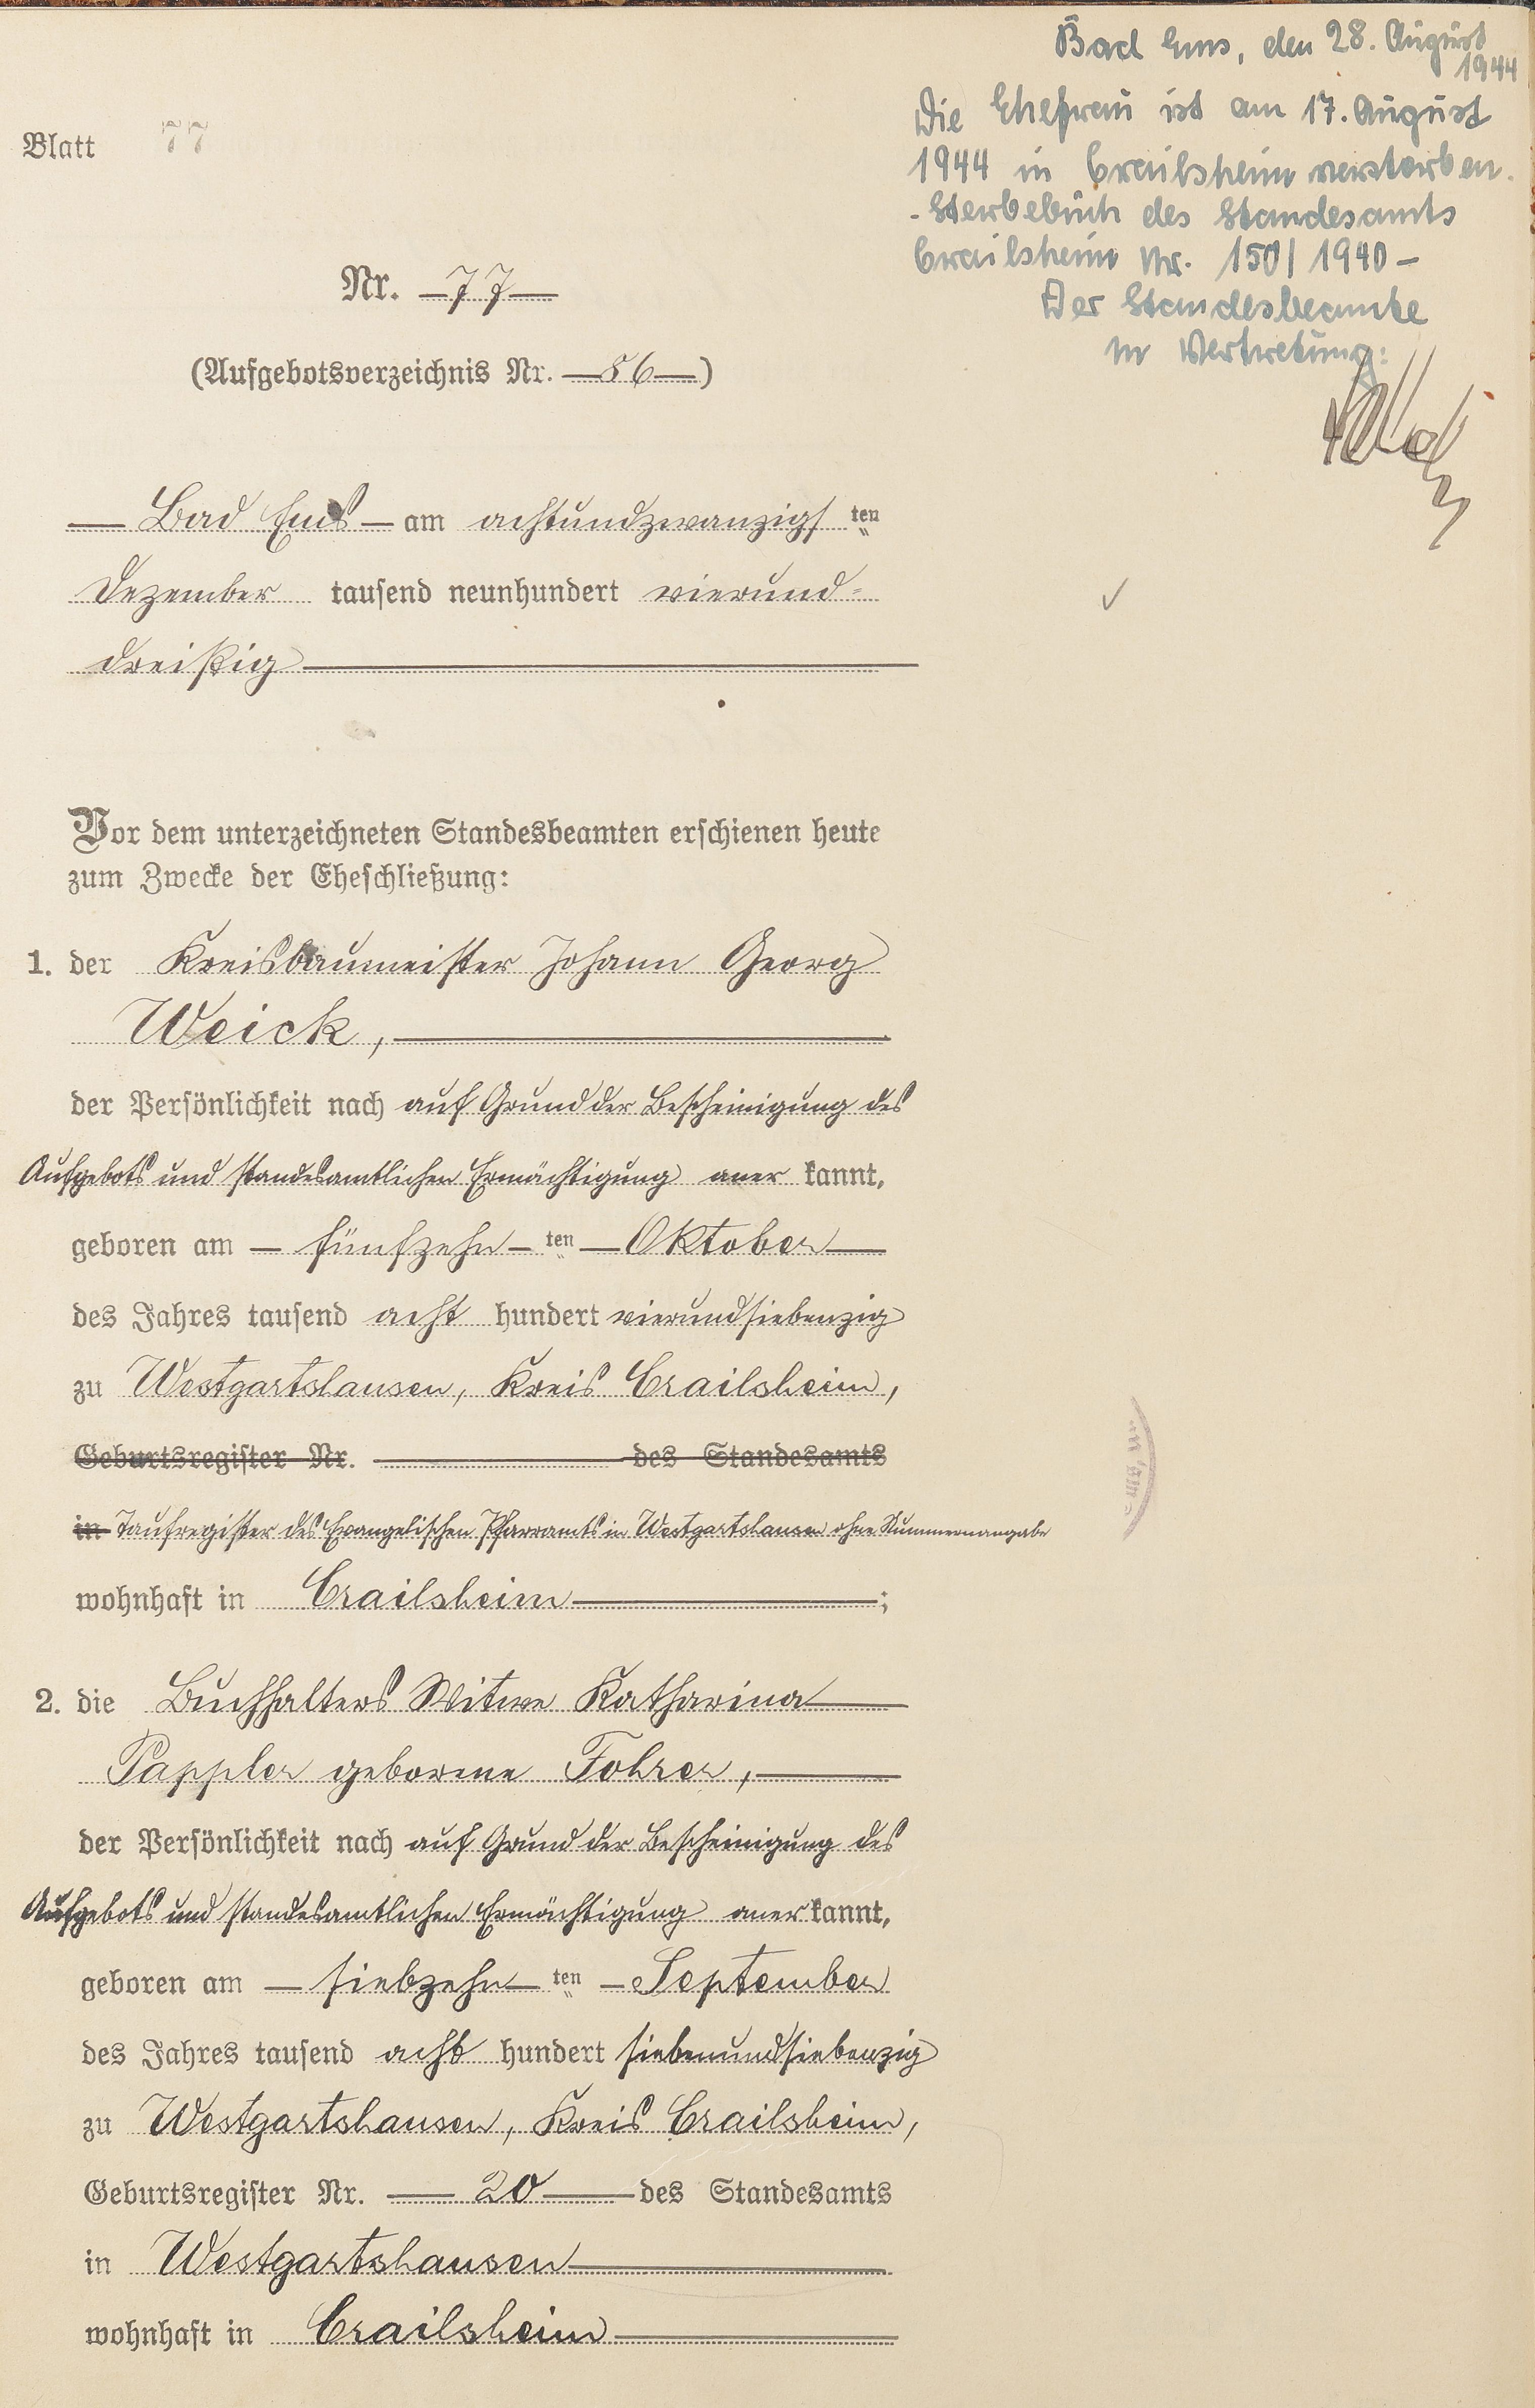 Bad Ems, den 28. August
1944
Die Ehefrau ist am 17. August
1944 in Crailsheim verstorben.
- Sterbebuch des Standesamts
Crailsheim Nr. 150/1940 -
Der Standesbeamte
In Vertretung:
Blatt 77
Nr. 77
(Aufgebotsverzeichnis Nr. 86)
Bad Ems am achtundzwanzigsten
Dezember tausend neunhundert vierund-
dreißig
Vor dem unterzeichneten Standesbeamten erschienen heute
zum Zwecke der Eheschließung:
1. der Kreisbaumeister Johann Georg
Weick,
der Persönlichkeit nach auf Grund der Bescheinigung des
Aufgebots und standesamtlichen Ermächtigung anerkannt,
geboren am fünfzehnten Oktober
des Jahres tausend acht hundert vierundsiebenzig
zu Westgartshausen, Kreis Crailsheim,
Geburtsregister Nr. des Standesamts
in Taufregister des Evangelischen Pfarramts in Westgartshausen ohne Nummernangabe
wohnhaft in Crailsheim;
2. die Buchhalters Witwe Katharina
Pappler geborene Fohrer,
der Persönlichkeit nach auf Grund der Bescheinigung des
Aufgebots und standesamtlichen Ermächtigung anerkannt,
geboren am siebzehnten September
des Jahres tausend acht hundert siebenundsiebenzig
zu Westgartshausen, Kreis Crailsheim,
Geburtsregister Nr. 20 des Standesamts
in Westgartshausen
wohnhaft in Crailsheim